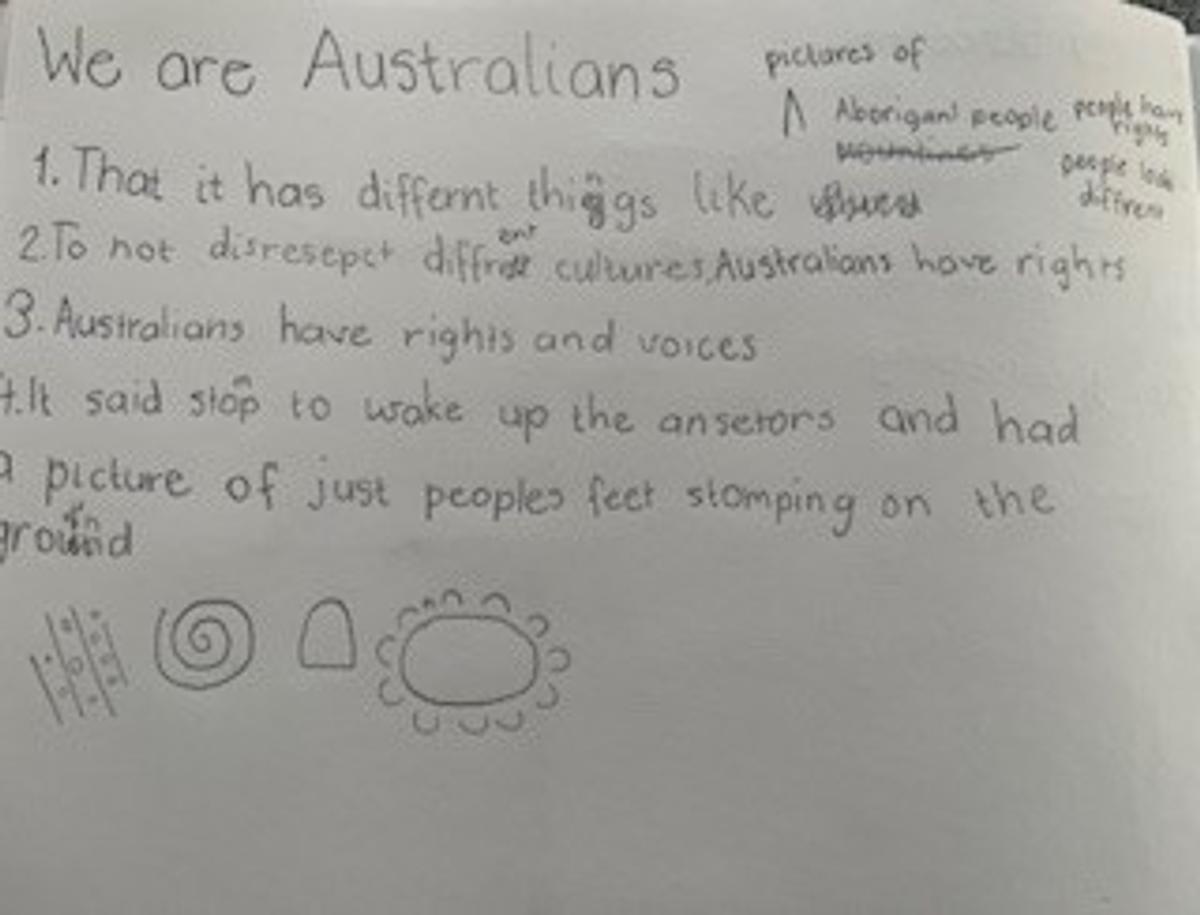 We are Australians
pictures of
Aboriganl people
people have rights
people look different
1. That it has differnt things like
2. To not disresepct diffrent cultures, Australians have rights
3. Australians have rights and voices
4. It said stomp to wake up the ansetors and had
a picture of just peoples feet stomping on the
ground